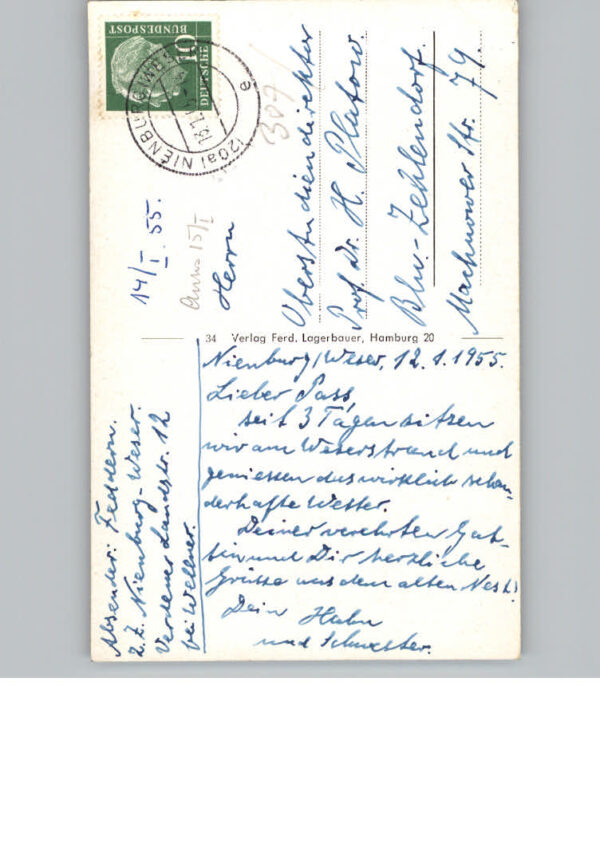 DEUTSCHE
BUNDESPOST
10
(20a) NIENBURG (WESER)
e
304
14/I. 55.
Anno 15/I
Herrn
Oberstudiendirektor
Prof. Dr. H. Platow.
Bln-Zehlendorf.
Machnower Str. 79.
34 Verlag Ferd. Lagerbauer, Hamburg 20
Nienburg/Weser, 12.1.1955.
Lieber Pass,
seit 3 Tagen sitzen
wir am Weserstrand und
geniessen das wirklich schau-
derhafte Wetter.
Deiner verehrten Gat-
tin und Dir herzliche
Grüsse aus dem alten Nest!
Dein Hahn
und Schwester.
Absender: Feddern.
z.Z. Nienburg-Weser.
Verdener Landstr. 12
bei Wellner.